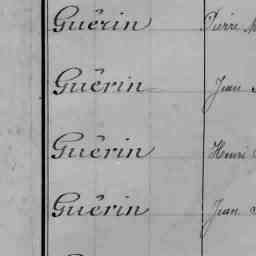 Guérin Pierre
Guérin Jean
Guérin Henri
Guérin Jean